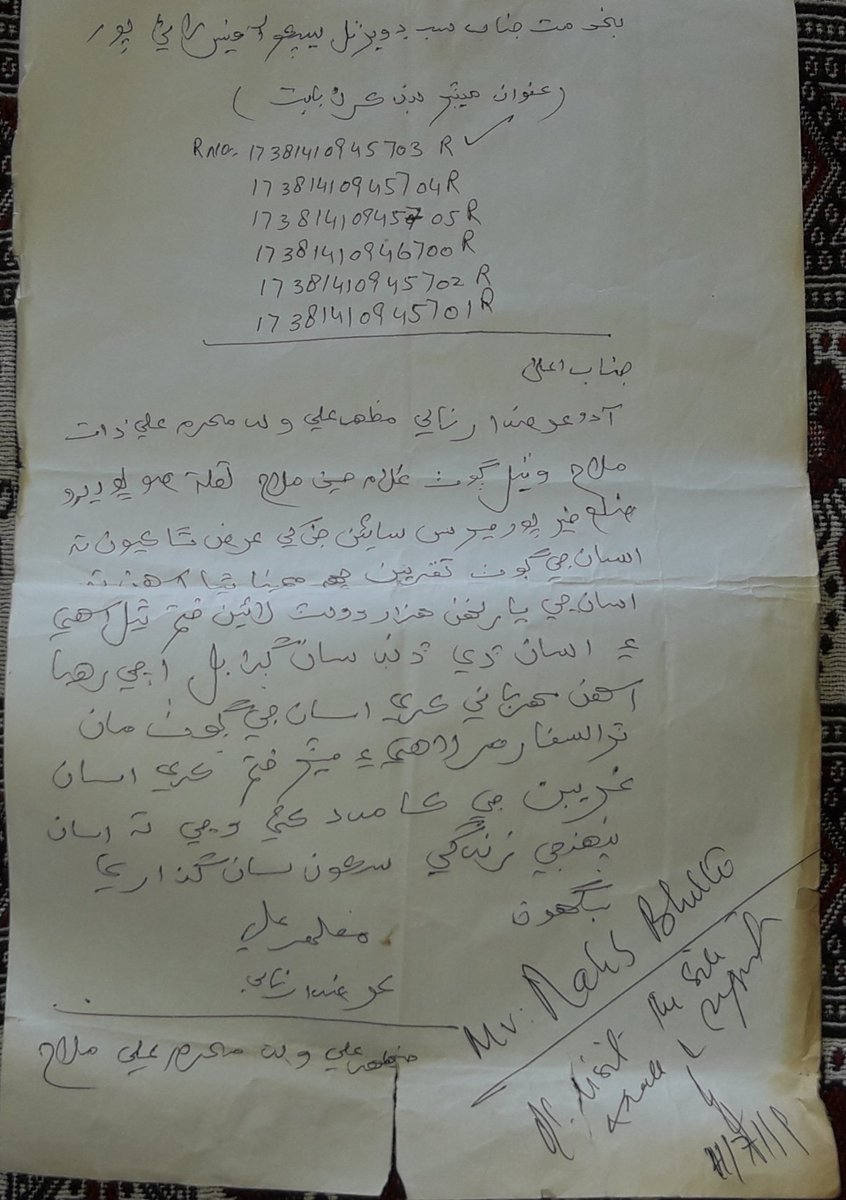 بخدمت جناب سب ڊويزنل سيپڪو آفيس راڻي پور
(عنوان ميٽر بند ڪرڻ بابت)
R No: 17381410945703 R ✓
17381410945704 R
17381410945705 R
17381410946700 R
17381410945702 R
17381410945701 R
جناب اعليٰ
آئون عرضدار نالي مظهر علي ولد محرم علي ذات
ملاح ويٺل ڳوٺ غلام حسين ملاح تعلقه صوڀوديرو
ضلع خيرپور ميرس سائين جن کي عرض ٿا ڪيون ته
اسان جي ڳوٺ تقريبن ڇهه مهينا ٿيا آهن ته
اسان جي يارنهن هزار وولٽ لائين ختم ٿيل آهي
۽ اسان تي ڏنڊ سان گڏ بل اچي رهيا
آهن مهرباني ڪري اسان جي ڳوٺ مان
ٽرانسفارمر لاهي ۽ ميٽر ختم ڪري اسان
غريبن جي ڪا مدد ڪئي وڃي ته اسان
پنهنجي زندگي سڪون سان گذاري
سگهون
مظهر علي
عرضدار نالي
مظهر علي ولد محرم علي ملاح
Mr: Bhutto
visit the site